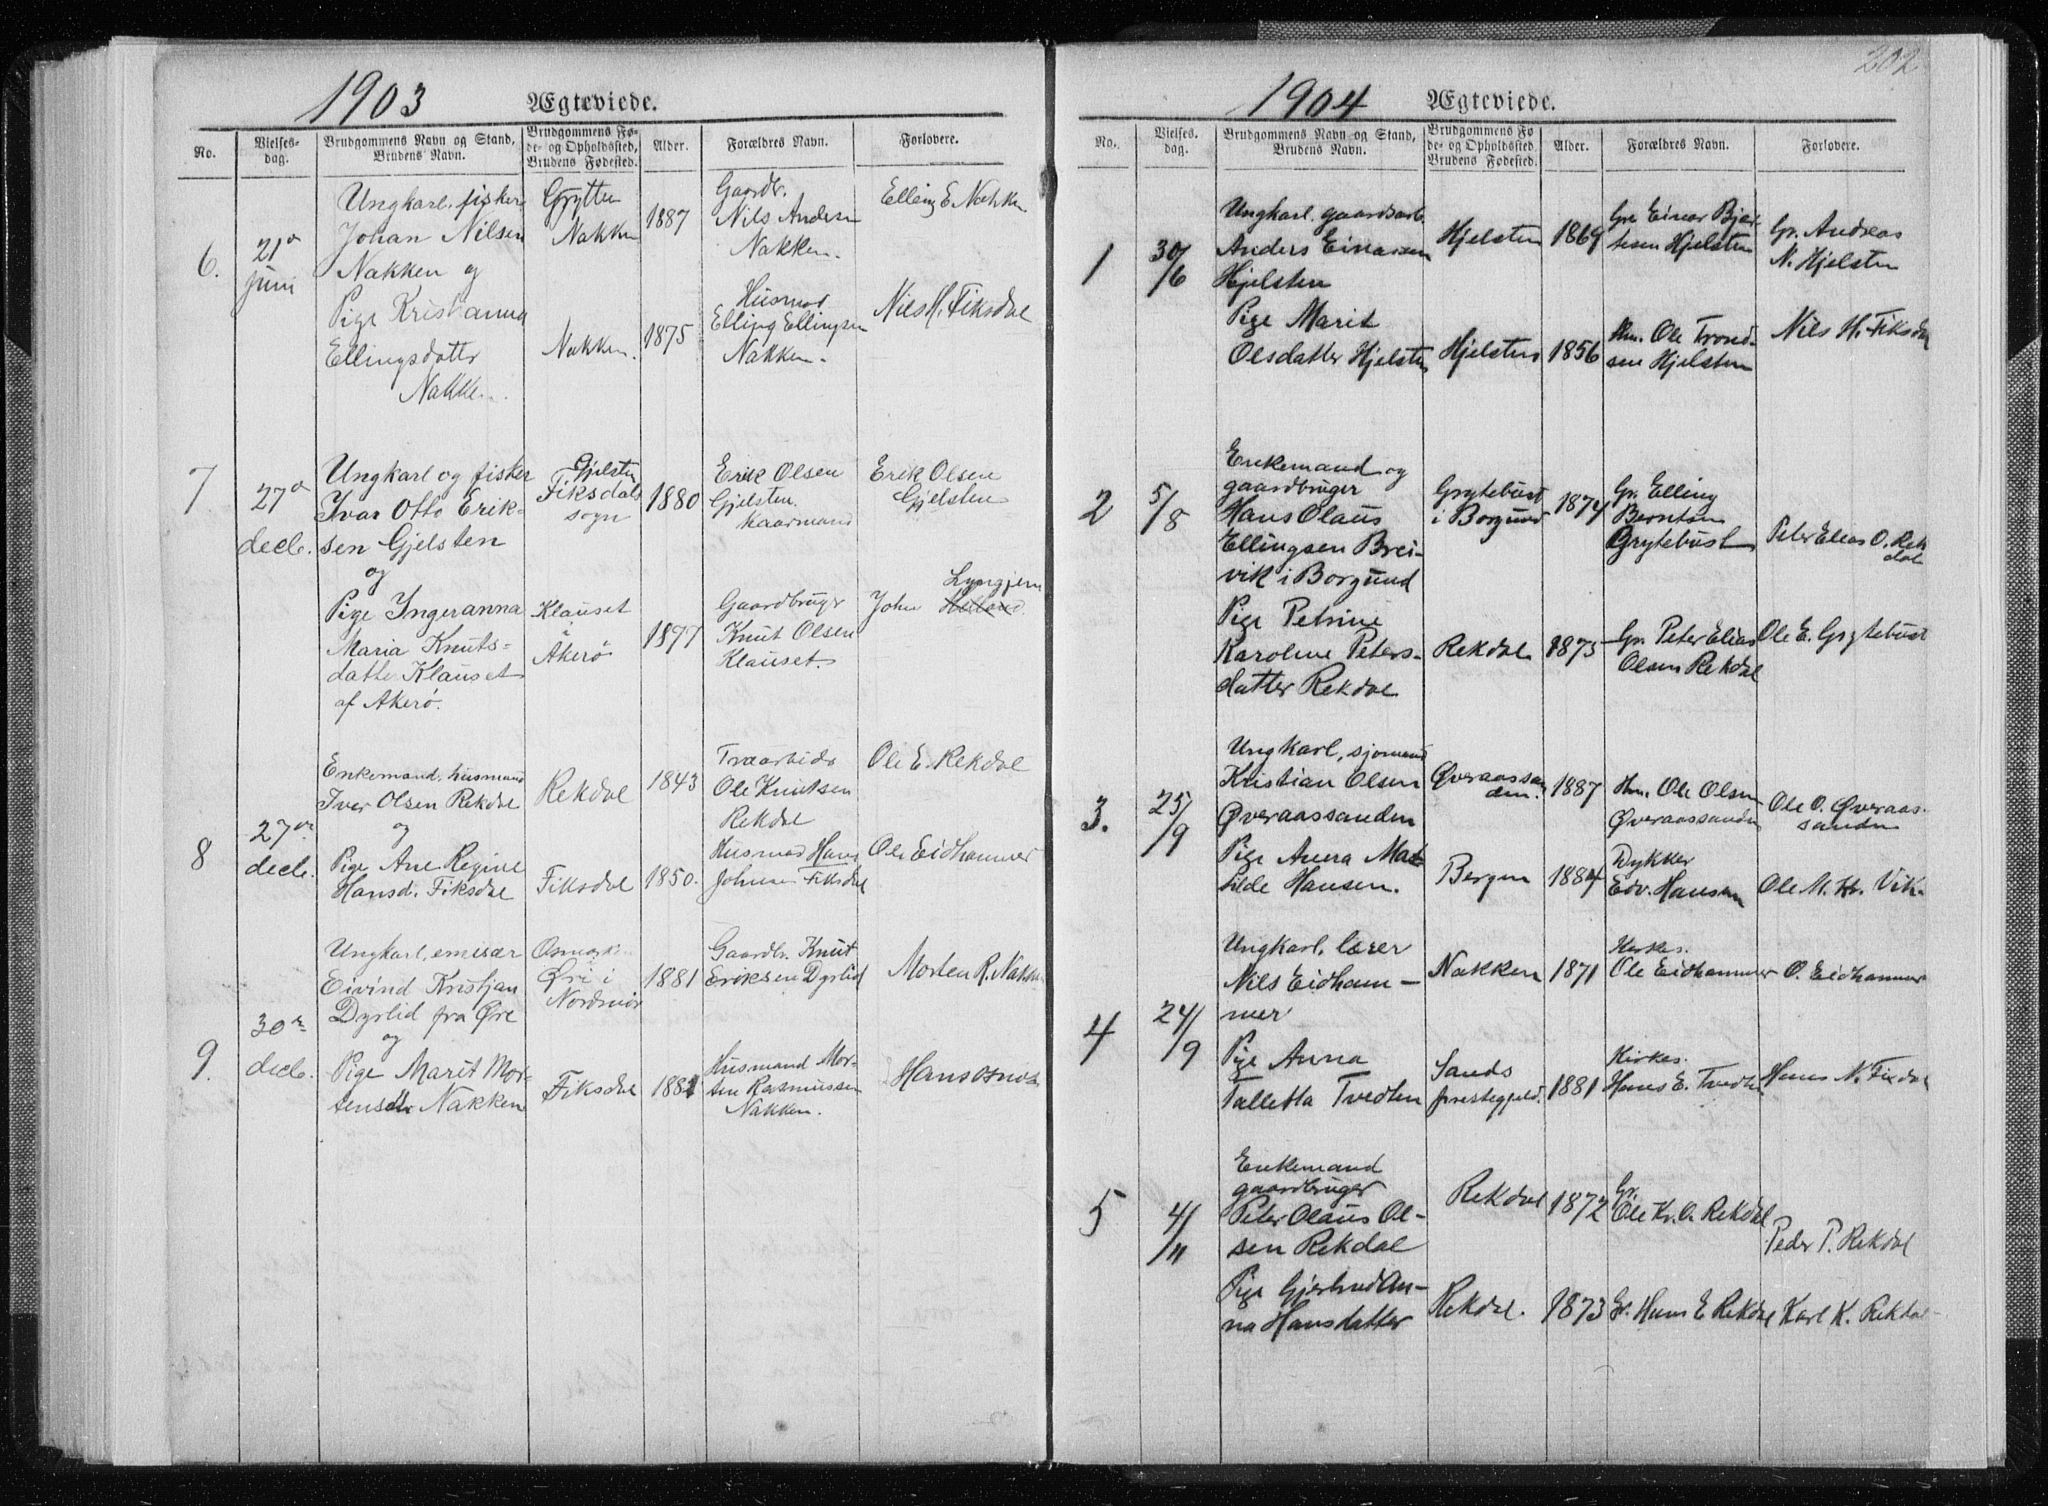 1903 Ægteviede.
No.
Vielses-
dag.
Brudgommens Navn og Stand,
Brudens Navn.
Brudgommens Fø-
de- og Opholdssted,
Brudens Fødested.
Alder.
Forældres Navn.
Forlovere.
6.
21de
juni
Ungkarl. fisker
Johan Nilsen
Nakken og
Pige Kristianna
Ellingsdatter
Nakken.
Grytten
Nakken
Nakken.
1887
1875
Gaardbr.
Nils Andersen
Nakken.
Husmand
Elling Ellingsen
Nakken.
Elling E. Nakken
Niels H. Fiksdal
7
27de
decb.
Ungkarl og fisker
Ivar Otto Erik-
sen Gjelsten
og
Pige Ingeranna
Maria Knuts-
datter Klauset
af Akerö.
Gjelsten
Fiksdals
sogn
Klauset
Akerö
1880
1877
Erik Olsen
Gjelsten.
Kaarmand
Gaardbruger
Knut Olsen
Klauset.
Erik Olsen
Gjelsten
Lyngjem
John
8
27de
decb.
Enkemand. husmand
Iver Olsen Rekdal
og
Pige Ane Regine
Hansd. Fiksdal
Rekdal
Fiksdal
1843
1850.
Ole Knutsen
Rekdal
Husmand Hans
Johnsen Fiksdal
Ole E. Rekdal
Ole Eidhammer
9.
30te
decb.
Ungkarl, emisær
Eivind Kristjan
Dyrlid fra Øre
og
Pige Marit Mor-
tensdtr Nakken
Osmark
Øre i
Nordmör
Fiksdal
1881
1881
Gaardbr. Knut
Eriksen Dyrlid
Husmand Mor-
ten Rasmussen
Nakken.
Morten R. Nakken
Hans Osnes
202
1904 Ægteviede.
No.
Vielses-
dag.
Brudgommens Navn og Stand,
Brudens Navn.
Brudgommens Fø
de- og Opholdssted,
Brudens Fødested.
Alder.
Forældres Navn.
Forlovere.
1
30/6
Ungkarl. gaardsarb.
Anders Einarsen
Hjelsten
Pige Marit
Olsdatter Hjelsten
Hjelsten
Hjelsten
1869
1856
Gr. Einar Bjør-
tesen Hjelsten
Hm. Ole Trond-
sen Hjelsten
Gr. Andreas
N. Hjelsten
Nils H. Fiksdal
2
5/8
Enkemand og
gaardbruger
Hans Olaus
Ellingsen Brei-
vik i Borgund
Pige Petrine
Karoline Peters-
datter Rekdal
Grytebust
i Borgund
Rekdal
1874
1875
Gr. Elling
Berntsen
Grytebust
Gr. Peter Elias
Olsen Rekdal
Peter Elias O. Rek
dal
Ole E. Grytebust
3.
25/9
Ungkarl, sjømand
Kristian Olsen
Øveraassanden
Pige Anna Mat-
hilde Hansen.
Øveraassan
den.
Bergen
1887
1884
Hm. Ole Olsen
Øveraassanden
Dykker
Edv. Hansen
Ole O. Øveraas-
sanden
Ole M. Kr. Vik.
4
24/9
Ungkarl, lærer
Nils Eidham-
mer
Pige Anna
Talletta Tvedten
Nakken
Sands
prestegjeld.
1871
1881
Kirkes.
Ole Eidhammer
Kirkes.
Hans E. Tvedten
O. Eidhammer
Hans N. Fixdal
5
4/11
Enkemand
gaardbruger
Peter Olaus Ol-
sen Rekdal
Pige Gjertrud An-
na Hansdatter
Rekdal
Rekdal.
1872
1873
Gr.
Ole Kr. O. Rekdal
Gr. Hans E Rekdal
Peder P. Rekdal
Karl K. Rekdal